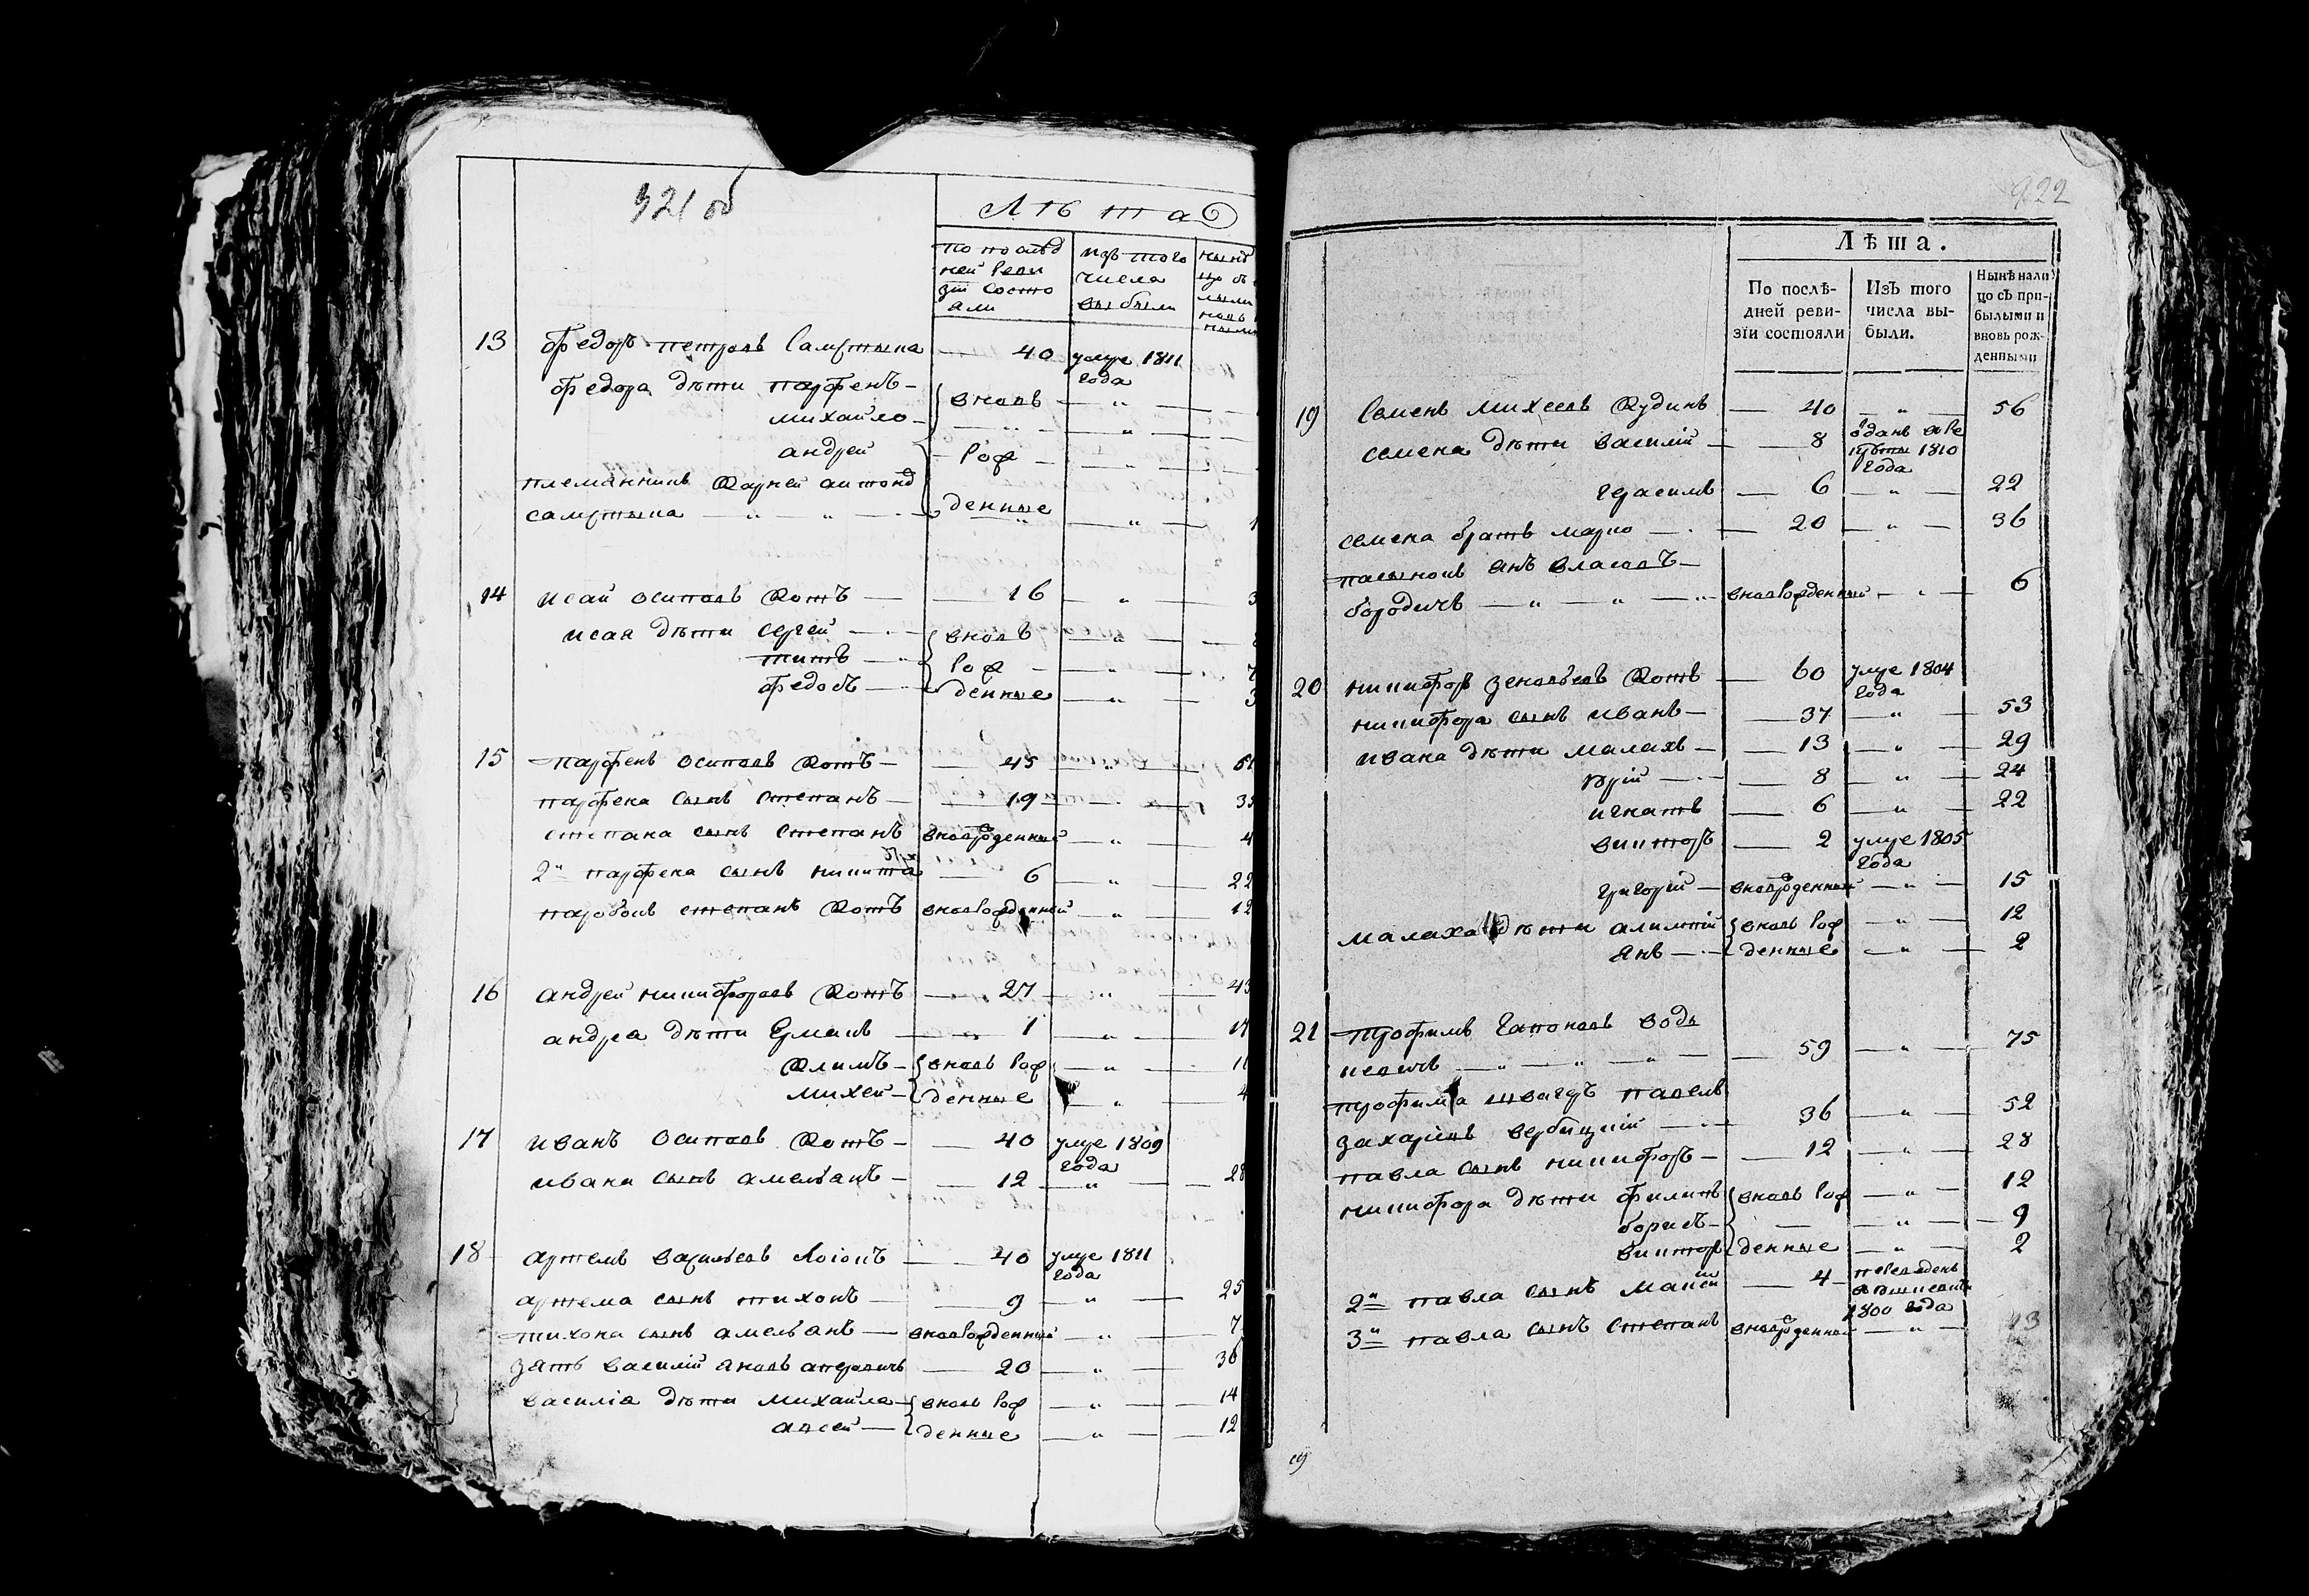 921 об
Лѣта
по послѣд
ней Реви
зіи состо
яли
изъ того
числа
выбыли
нынѣ
13 Федоръ петровъ Самутына — 40 умре 1811
года
Федора дѣти парфенъ —
вновь — „ —
михайло — — „ —
андрей — Рож — — „ —
племянникъ Карней антонов
самутына — „ — „ — денные — „ — 1
14 исай осиповъ Котъ — 16 „ 3
исая дѣти сергей — вновь — „ —
титъ — Рож — „ — 7
федосъ — денные — „ — 3
15 парфенъ осиповъ Котъ — 45 — „ — 61
парфена сынъ степанъ — 19 — „ — 35
степана сынъ степанъ вноврожденный — „ — 4
2й парфена сынъ никита — 6 — „ — 22
паробокъ степанъ Котъ вновРожденный — „ — 12
16 андрей никифоровъ Котъ — 27 — „ — 43
андрея дѣти Ермакъ — 1 — „ — 17
Климъ — вновь Рож — „ — 11
михей — денные — „ — 4
17 иванъ осиповъ Котъ — 40 умре 1809
года
ивана сынъ амельянъ — 12 — „ — 28
18 артемъ васильевъ — 40 умре 1811
года
артема сынъ тихонъ — 9 — „ — 25
тихона сынъ амельянъ — вновРожденный — „ — 7
зять василій яковъ — 20 — „ — 36
василія дѣти михайла — вновь Рож — „ — 14
алсей — денные — „ — 12
922
Лѣта.
По послѣ-
дней реви-
зіи состояли
Изъ того
числа вы-
были.
Нынѣ нали
цо съ при-
былыми и
вновь рож-
денными
19 Семенъ михеевъ Кудинъ — 40 — „ — 56
семена дѣти василій — 8 зданъ в Ре
круты 1810
года
герасимъ — 6 — „ — 22
семена братъ марко — 20 — „ — 36
пасынокъ янъ власовъ —
бородичъ — „ — „ — вновРожденный — „ — 6
20 никифоръ зеновьевъ Котъ — 60 умре 1804
года
никифора сынъ иванъ — 37 — „ — 53
ивана дѣти малахъ — 13 — „ — 29
юрій — 8 — „ — 24
игнатъ — 6 — „ — 22
викторъ — 2 умре 1805
года
григорій — вноврожденный — „ — 15
малаха дѣти алимпій вновь Рож — „ — 12
янъ — денные — „ — 2
21 трофимъ Гапоновъ водь
невичъ — „ — „ — „ — 59 — „ — 75
трофима швагеръ павелъ
захаріивъ вербицкій — 36 — „ — 52
павла сынъ никифоръ — 12 — „ — 28
никифора дѣти филипъ вновь Рож — „ — 12
борисъ — — „ — 9
викторъ денные — „ — 2
2й павла сынъ — 4 переведенъ
1800 года
3й павла сынъ степанъ вноврожденный — „ — 13